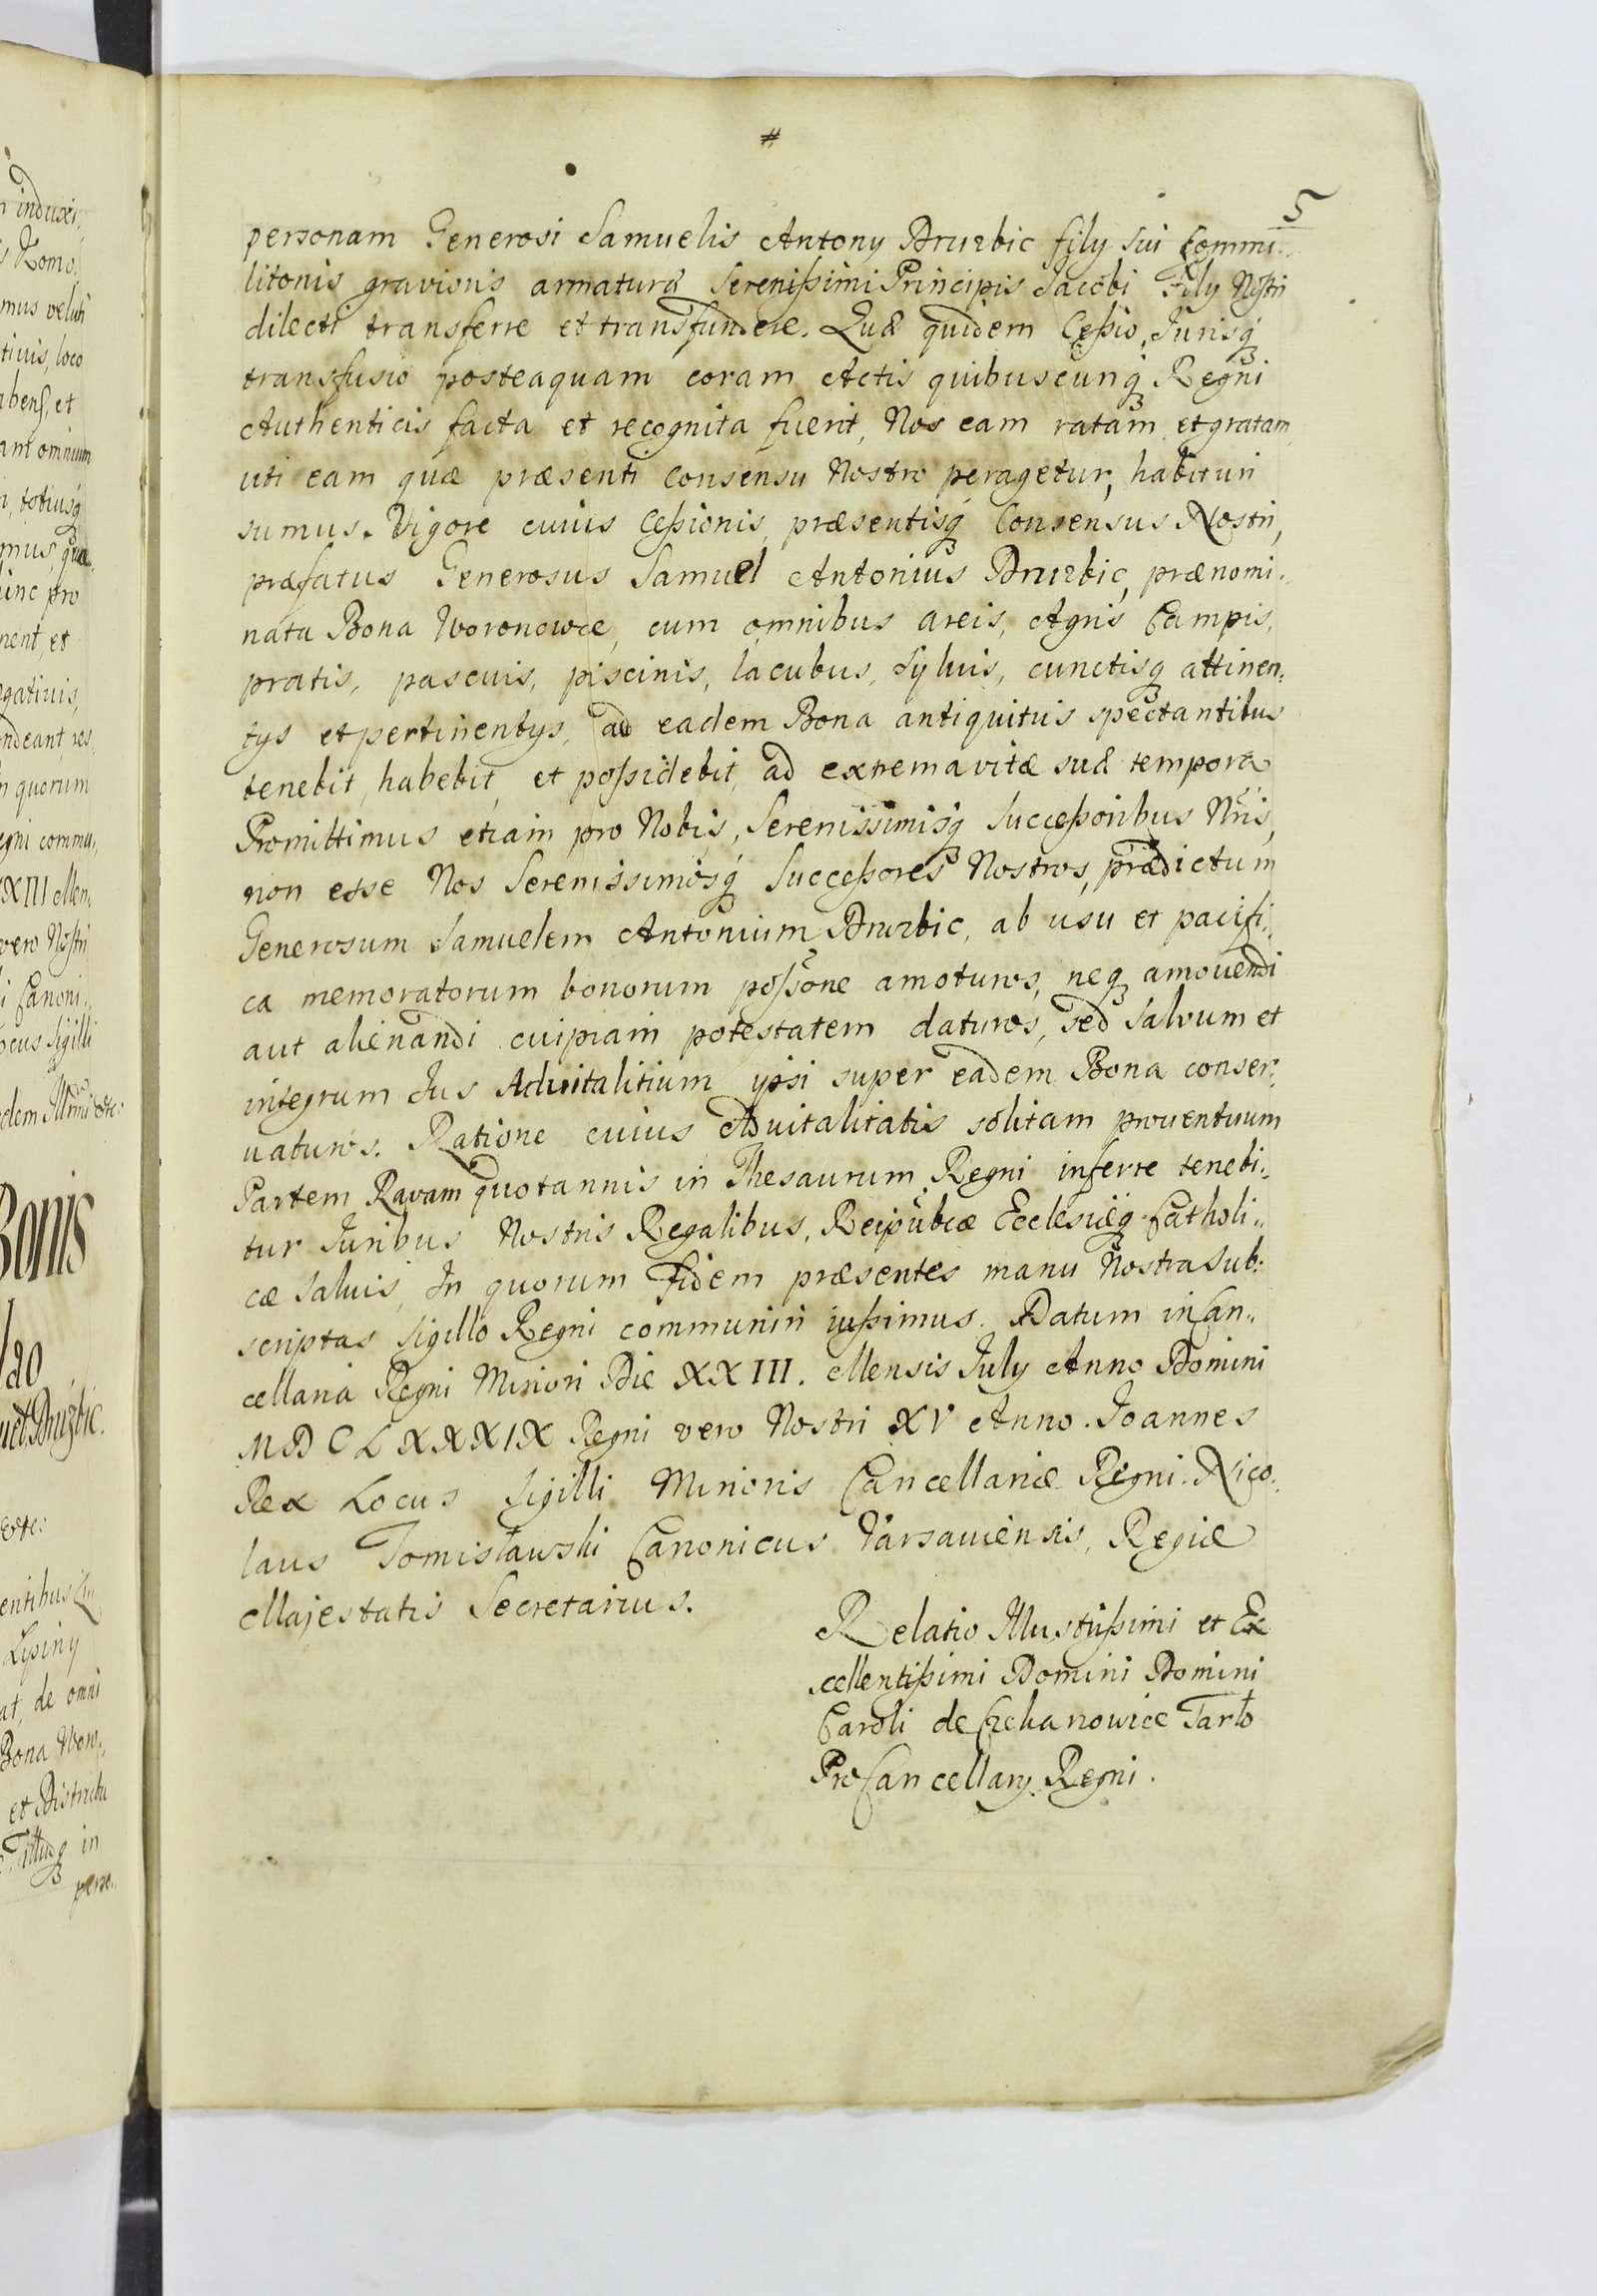 #
5
personam Generosi Samuelis Antony Druzbic fily sui Commi„
litonis gravioris armaturæ Serenißimi Principis Jacobi Fily Nostri
dilecti transferre et transfundere. Quæ quidem Ceßio, Jurisq
transfusio posteaquam coram Actis quibuscunq Regni
Authenticis facta et recognita fuerit, Nos eam ratam et gratam
uti eam quæ præsenti Consensu Nostro peragetur, habituri
sumus. Vigore cuius Ceßionis, præsentisq Consensus Nostri,
præfatus Generosus Samuel Antonius Druzbic, prænomi„
nata Bona Woronowce, cum omnibus areis, Agris Campis,
pratis, pascuis, piscinis, lacubus, Sylvis, cunctisq attinen„
tys et pertinentys, ad eadem Bona antiquitus spectantibus
tenebit, habebit, et poßidebit, ad extrema vitæ suæ tempora
Promittimus etiam pro Nobis, Serenissimisq Succeßoribus Nris,
non esse Nos Serenissimosq Succeßores Nostros, prædictum
Generosum Samuelem Antonium Druzbic, ab usu et pacifi„
ca memoratorum bonorum poßone amoturos, neq amovendi
aut alienandi cuipiam potestatem daturos, sed Salvum et
integrum Jus Advitalitium ypsi super eadem Bona conser„
uaturos. Ratione cuius Advitalitatis solitam prouentuum
Partem Ravam quotannis in Thesaurum Regni inferre tenebi„
tur Juribus Nostris Regalibus, Reipubcæ Ecclesiæq Catholi„
cæ Saluis, In quorum Fidem præsentes manu Nostra Sub„
scriptas Sigillo Regni communiri iußimus. Datum in Can„
cellaria Regni Minori Die XXIII. Mensis July Anno Domini
MDCLXXXIX Regni vero Nostri XV Anno. Joannes
Rex Locus Sigilli Minoris Cancellariæ Regni. Nico„
laus Tomisławski Canonicus Varsauiensis, Regiæ
Majestatis Secretarius.
Relatio Illustrißimi et Ex
cellentißimi Domini Domini
Caroli de Czekanowice Tarło
ProCancellary Regni.